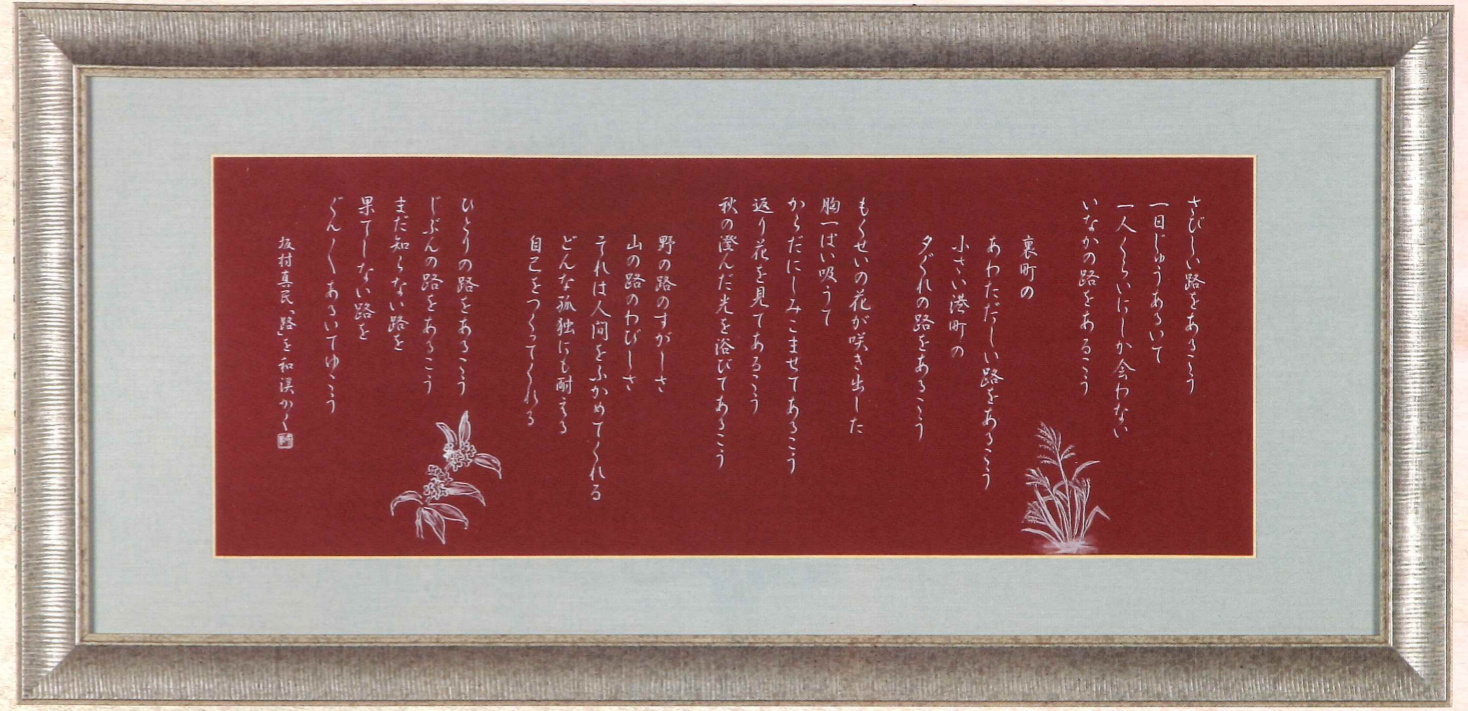 さびしい路をあるこう
一日じゅうあるいて
一人くらいにしか会わない
いなかの路をあるこう
裏町の
あわただしい路をあるこう
小さい港町の
夕ぐれの路をあるこう
もくせいの花が咲き出した
胸一ぱい吸うて
からだにしみこませてあるこう
返り花を見てあるこう
秋の澄んだ光を浴びてあるこう
野の路のすがしさ
山の路のわびしさ
それは人間をふかめてくれる
どんな孤独にも耐える
自己をつくってくれる
ひとりの路をあるこう
じぶんの路をあるこう
まだ知らない路を
果てしない路を
ぐんぐんあるいてゆこう
坂村真民「路」を 和渓かく